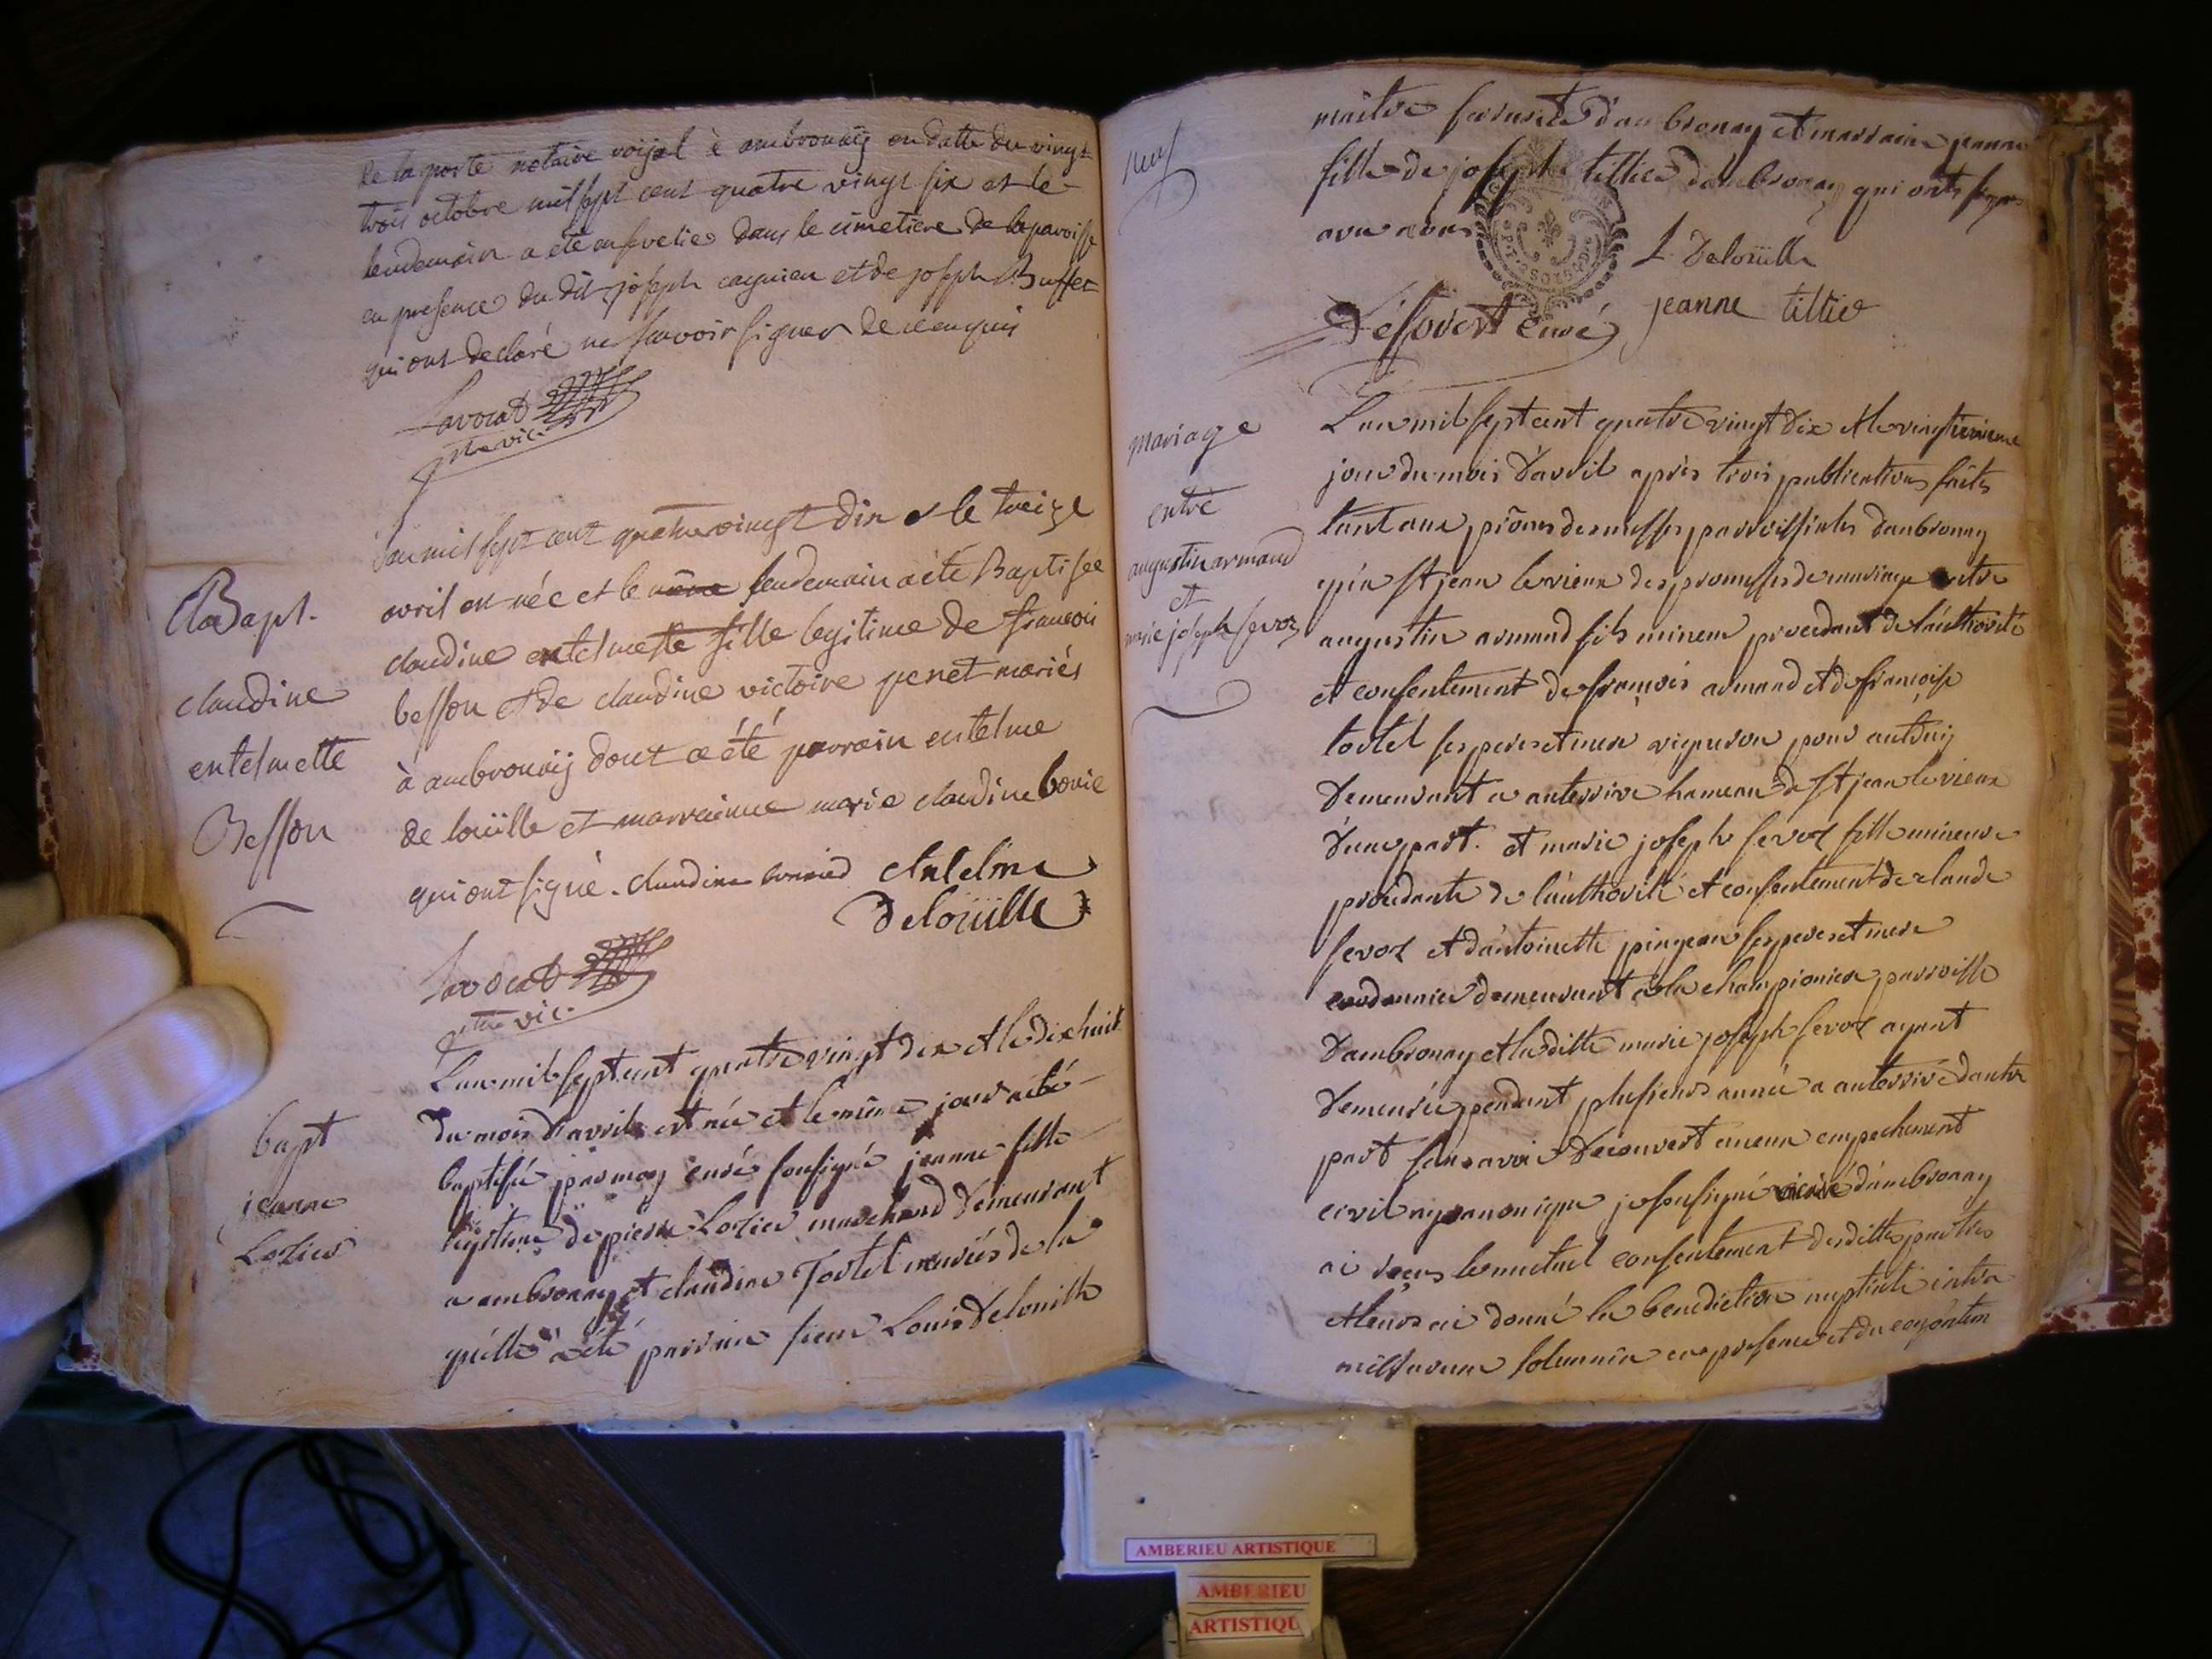 de la porte notaire roijal à ambronaÿ en datte du vingt
trois octobre mil sept cent quatre vingt six et le
lendemain a été ensevelie dans le cimetiere de la paroisse
en presence du dit joseph cagnien et de joseph Buffet
qui ont declaré ne savoir signer de ce enquis
Lavocat
ptre vic.
L'an mil sept cent quatre vingt dix et le treize
avril est née et le même lendemain a été Baptisée
claudine entelmette fille legitime de françois
besson et de claudine victoire penet mariés
à ambronaij dont a été parrain entelme
de loüille et marrainne marie claudine bovie
qui ont signé. claudine Antelme
Deloüille
Lavocat
ptre vic.
Bapt.
claudine
entelmette
Besson
L'an mil sept cent quatre vingt dix et le dix huit
du mois d'avril est née et le même jour a été
baptisée par moy curé sousigné jeanne fille
legitime de pierre Lozier marchand demeurant
a ambronay et claudine Tortel mariés de la
quelle a été parrain sieur Louis Delouille
bapt
jeanne
Lozier
neuf
maitre d'ambronay et marraine jeanne
fille de joseph tillier d'ambronay qui ont signé
avec nous
L. Deloüille
jeanne tillier
curé
mariage
entre
augustin armand
et
marie joseph fevoz
L'an mil sept cent quatre vingt dix et le vingt
jour du mois d'avril après trois publications faites
tant aux prônes des messes parroissiales d'anbronay
st jean le vieux des promesses de mariage entre
augustin armand fils mineur procedant de l'authorité
et consentement de françois armand et de françoise
tortel ses pere et mere vigneron
demeurant a auterrive hameau de st jean le vieux
d'une part. et marie joseph fevoz fille mineure
procedante de l'authorité et consentement de claude
fevoz et d'antoinette pingeon ses pere et mere
cordonnier demeurant a la championiere parroisse
d'ambronay et laditte marie joseph fevoz ayant
demeurée pendant plusieurs année a auterrive d'autre
part sans avoir decouvert aucun empechement
civil ny canonique je sousigné d'ambronay
ai reçus le mutuel consentement desdittes parties
et leurs ai donné la benediction nuptiale intra
solemnia en presence et du
AMBERIEU ARTISTIQUE
AMBERIEU
ARTISTIQU